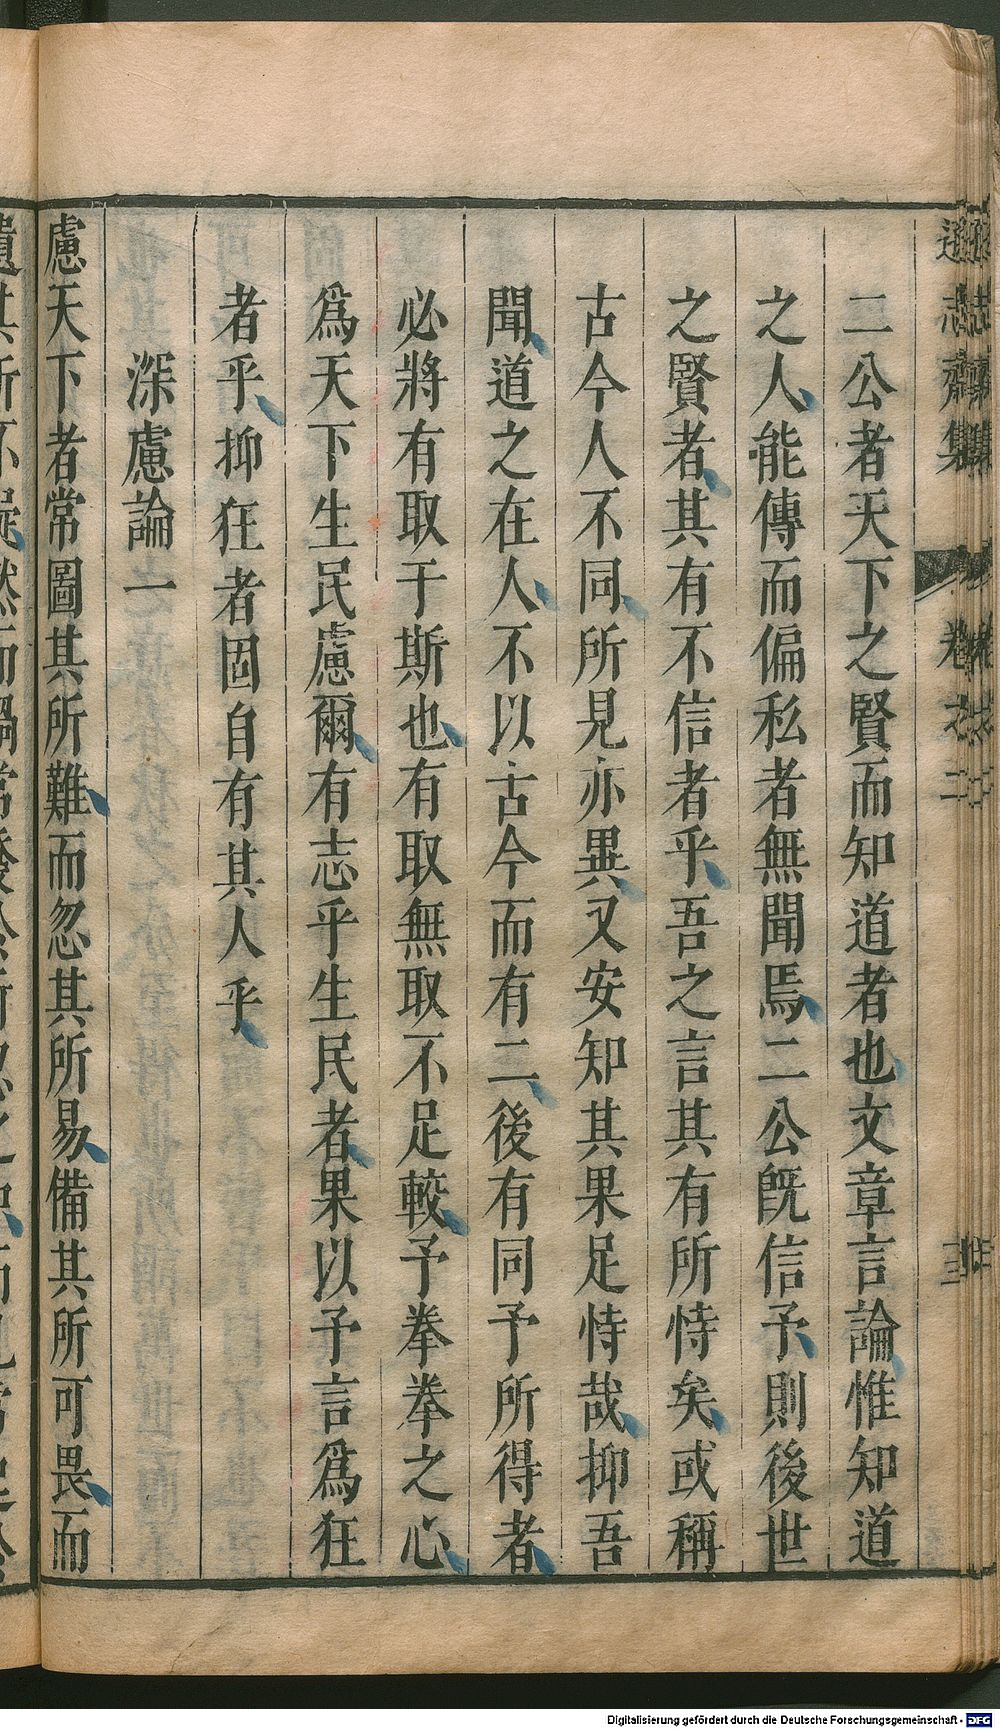 遜志齋集
卷之二
二公者天下之賢而知道者也文章言論惟知道
之人能傳而偏私者無聞焉二公旣信予則後世
之賢者其有不信者乎吾之言其有所恃矣或稱
古今人不同所見亦異又安知其果足恃哉抑吾
聞道之在人不以古今而有二後有同予所得者
必將有取于斯也有取無取不足較予拳拳之心
爲天下生民慮爾有志乎生民者果以予言爲狂
者乎抑狂者固自有其人乎
深慮論一
慮天下者常圖其所難而忽其所易備其所可畏而
Digitalisierung gefördert durch die Deutsche Forschungsgemeinschaft - DFG